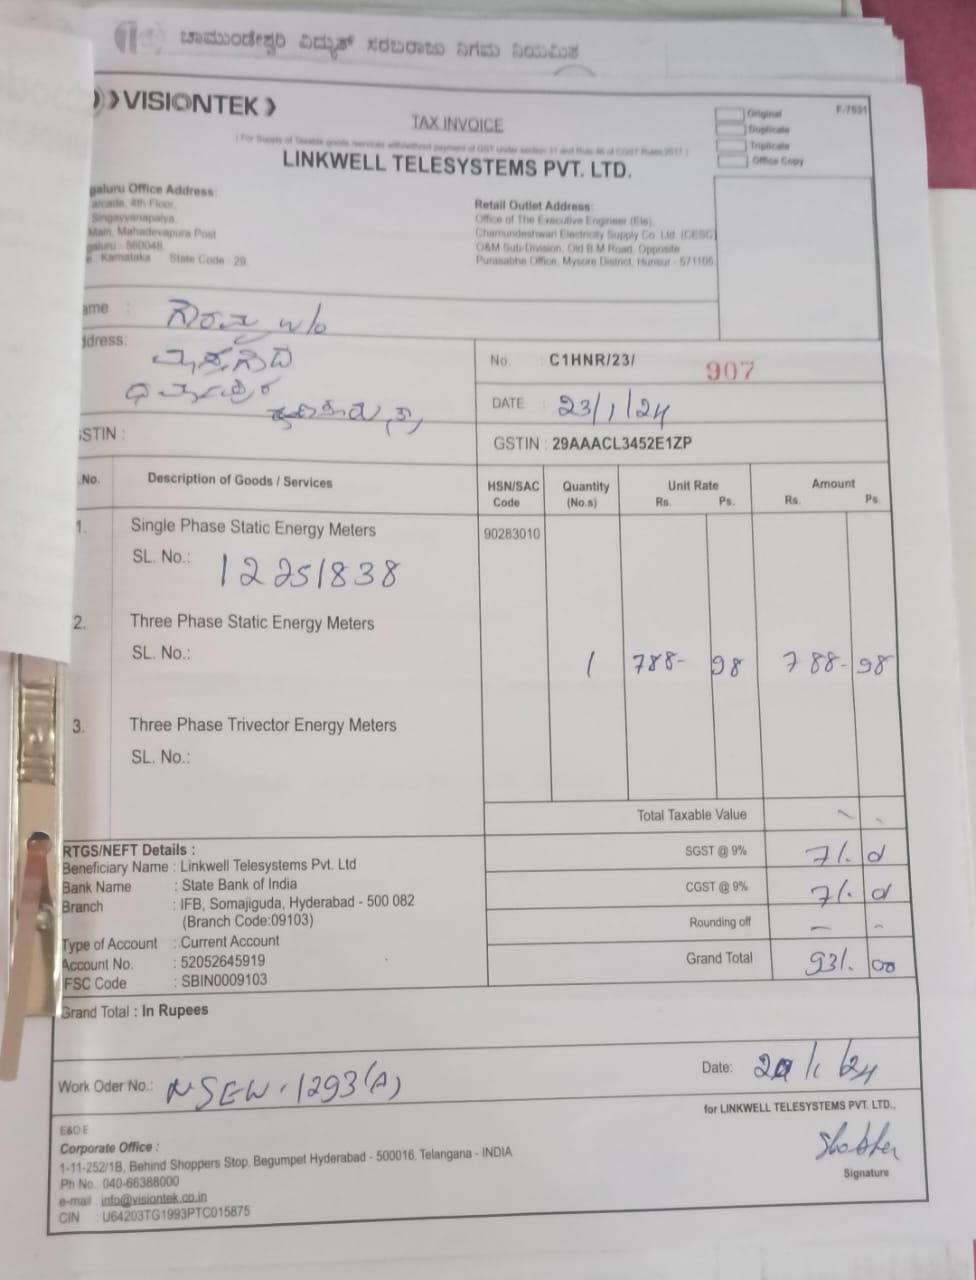 ಚಾಮುಂಡೇಶ್ವರಿ ವಿದ್ಯುತ್ ಸರಬರಾಜು ನಿಗಮ ನಿಯಮಿತ
VISIONTEK
F-7531
TAX INVOICE
Original
Duplicate
Triplicate
Office Copy
LINKWELL TELESYSTEMS PVT. LTD.
galuru Office Address:
arcade, 4th Floor,
Singayyanapalya,
Main, Mahadevapura Post
galuru - 560048.
e Karnataka State Code : 29
Retail Outlet Address:
Office of The Executive Engineer (Ele),
Chamundeshwari Electricity Supply Co. Ltd. (CESC)
O&M Sub-Division, Old B.M Road, Opposite
Purasabhe Office, Mysore District, Hunsur - 571105
ame : w/o
ddress:
No. C1HNR/23/ 907
DATE : 23/1/24
GSTIN : 29AAACL3452E1ZP
STIN :
.No. Description of Goods / Services HSN/SAC Code Quantity (No.s) Unit Rate Rs. Ps. Amount Rs. Ps.
1. Single Phase Static Energy Meters 90283010
SL. No.: 12251838
2. Three Phase Static Energy Meters
SL. No.: 1 788- 98 788- 98
3. Three Phase Trivector Energy Meters
SL. No.:
Total Taxable Value
SGST @ 9% 71.
CGST @ 9% 71.
Rounding off
Grand Total 931. 00
RTGS/NEFT Details :
Beneficiary Name : Linkwell Telesystems Pvt. Ltd
Bank Name : State Bank of India
Branch : IFB, Somajiguda, Hyderabad - 500 082
(Branch Code:09103)
Type of Account : Current Account
Account No. : 52052645919
FSC Code : SBIN0009103
Grand Total : In Rupees
Work Oder No.: NSEW-1293(A)
Date: /1/24
for LINKWELL TELESYSTEMS PVT. LTD.,
Signature
E&O E
Corporate Office :
1-11-252/1B, Behind Shoppers Stop, Begumpet Hyderabad - 500016, Telangana - INDIA
Ph No. 040-66388000
e-mail : info@visiontek.co.in
CIN : U64203TG1993PTC015875